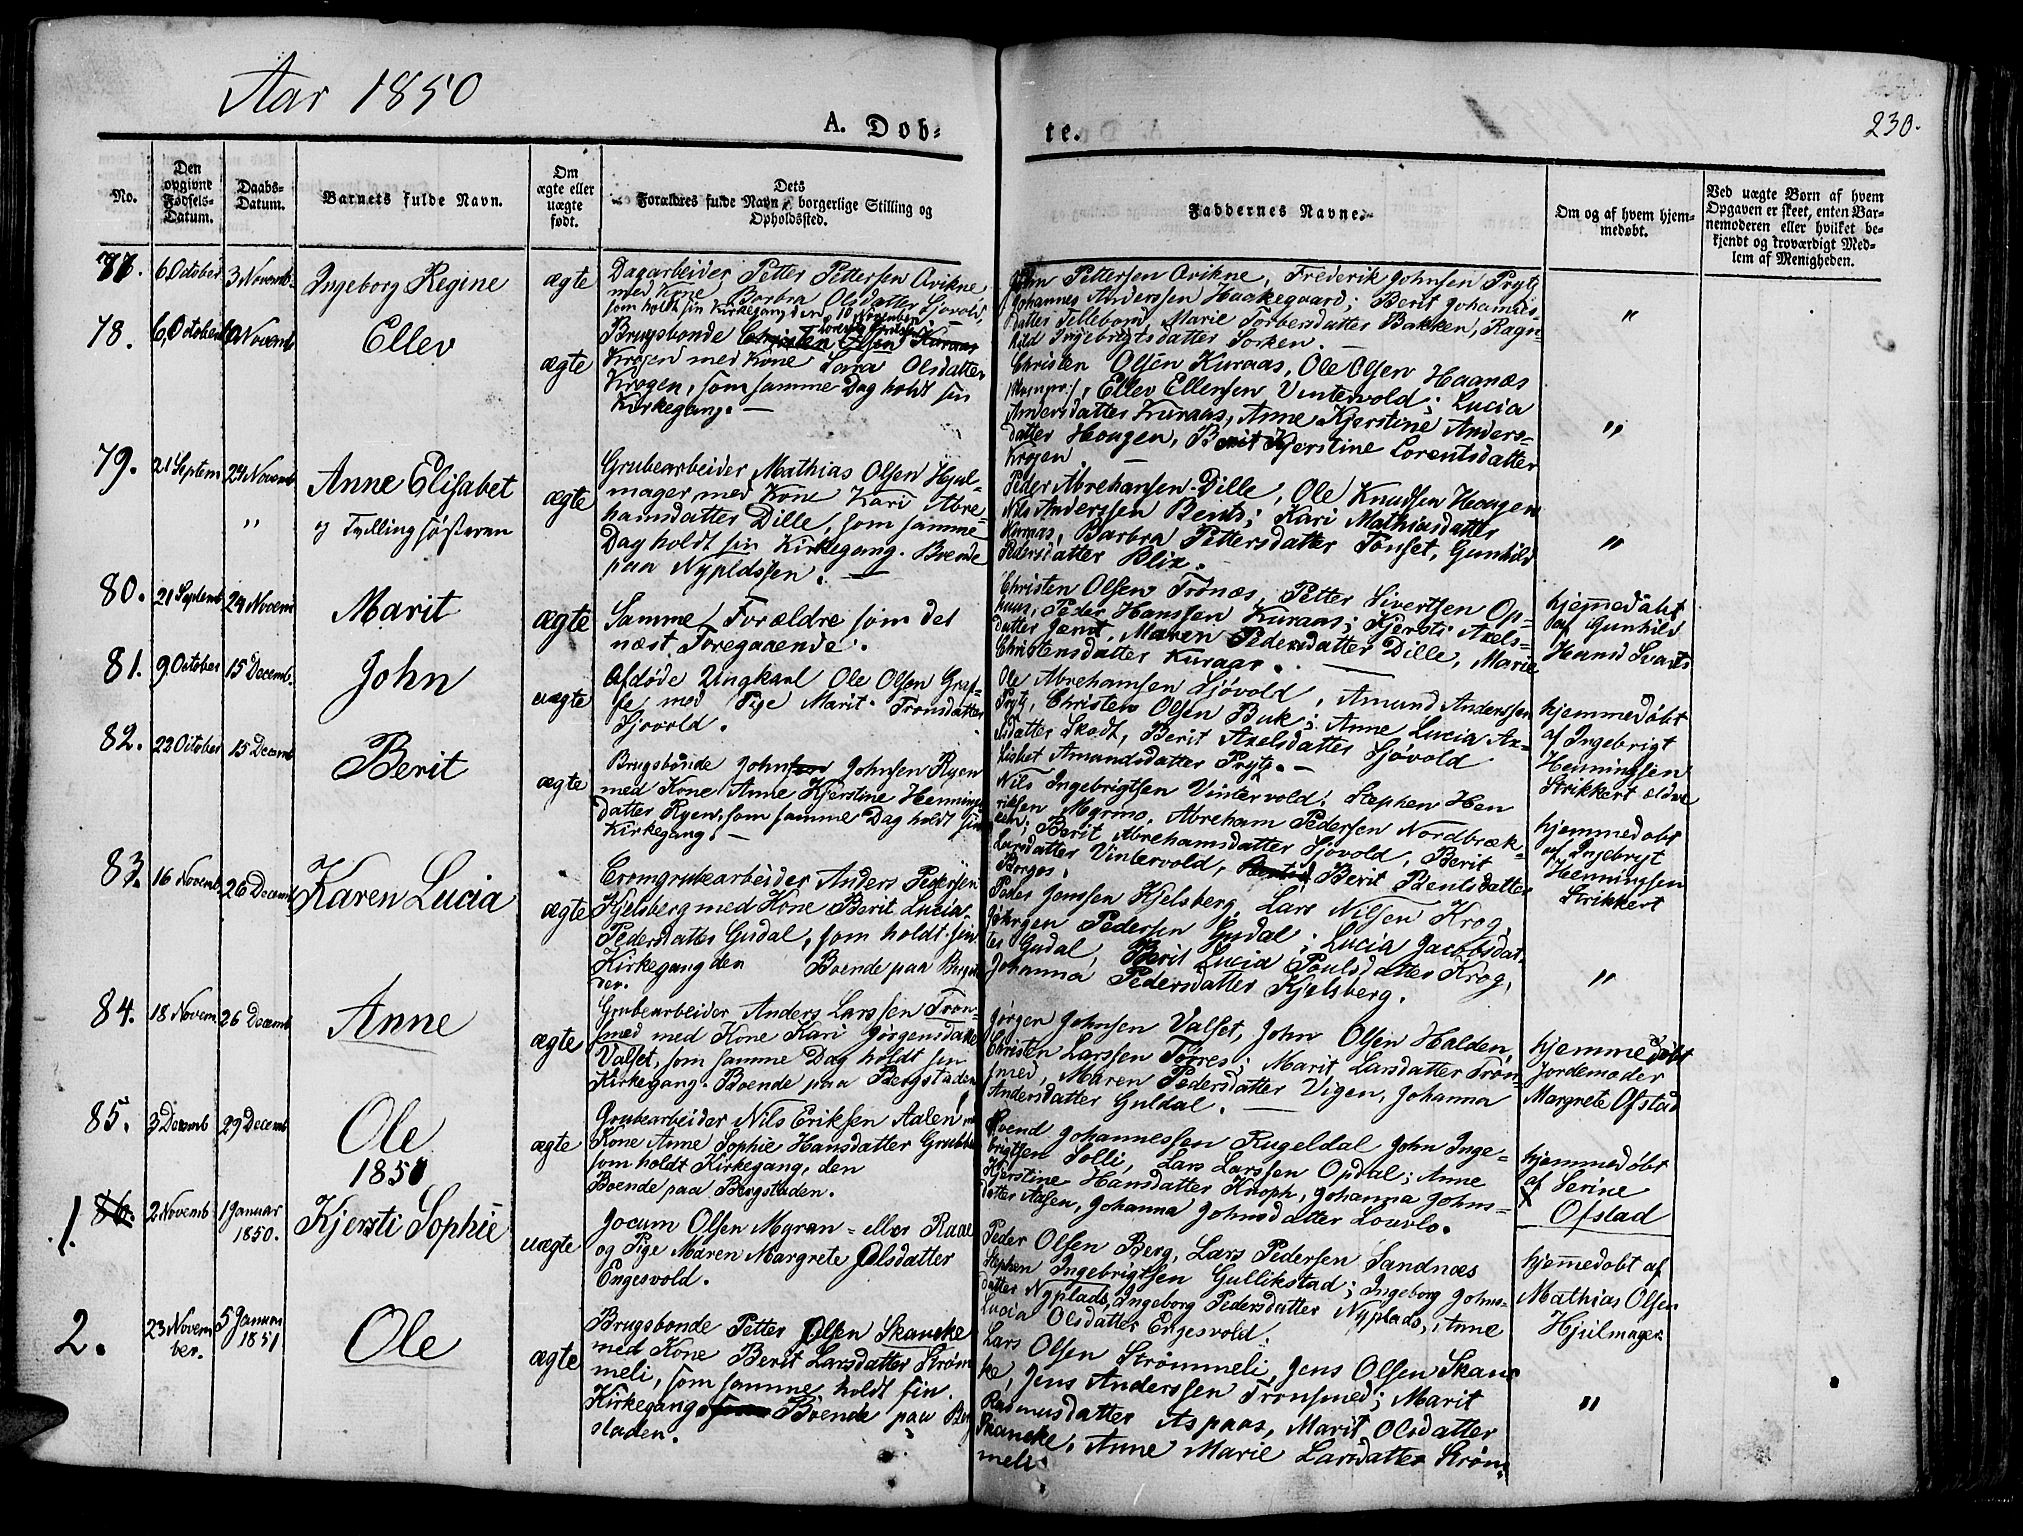 Aar 1850
A. Døb-
te.
230.
No.
Den opgivne Fødsels-Datum.
Daabs-Datum.
Barnets fulde Navn.
Om ægte eller uægte født.
Dets Forældres fulde Navn, borgerlige Stilling og Opholdssted.
Faddernes Navne.
Om og af hvem hjem-
medøbt.
Ved uægte Børn af hvem
Opgaven er skeet, enten Bar-
nemoderen eller hvilket be-
kjendt og troværdigt Med-
lem af Menigheden.
77. 6 October 3 Novemb. Ingeborg Regine ægte
Dagarbeider Petter Pettersen Avikne
med Kone Barbra Olsdatter Sjøvold,
som holdt sin Kirkegang den 10 November
John Pettersen Avikne, Frederik Johnsen Prytz
Johannes Anderssen Haakegaard; Berit Johannes-
datter Tellebond, Marie Torbersdatter Bakken, Ragn-
hild Ingebrigtsdatter Sorken. —
"
78. 6, October Novemb Ellev ægte
Brugsbonde Christen Olsen Kuraas
Krogen med Kone Sara Olsdatter
Krogen, som samme Dag holdt sin
Kirkegang. —
Christen Olsen Kuraas, Ole Olsen Haanæs
Ellev Ellensen Vintervold; Lucia
Andersdatter Kuraas, Anne Kjerstine Anders-
datter Hougen, Berit Kjerstine Lorentsdatter
Krogen. —
"
79. 21 Septem 24 Novemb Anne Elisabet ægte
" og Tvillingsøsteren
Grubearbeider Mathias Olsen Hjul-
mager med Kone Kari Abre-
hamsdatter Dille, som samme
Dag holdt sin Kirkegang. Boende
paa Nypladssen. —
Peder Abrehamsen Dille, Ole Knudsen Hougen
Nils Anderssen Bents; Kari Mathiasdatter
Kuraas, Barbra Pettersdatter Tønset, Gunhild
Pedersdatter Blix. —
"
80. 21 Septemb 24 Novem Marit ægte
Samme Forældre som det
næst Foregaaende.
Christen Olsen Trønæs, Petter Sivertsen Op-
haus, Peder Hanssen Kuraas; Kjersti Axels-
datter Jemt, Maren Pedersdatter Dille, Marie
Christensdatter Kuraas. —
hjemmedøbt
af Gunhild
Hansd Svarts
81. 9 October 15 Decemb. John uægte
Afdøde Ungkarl Ole Olsen Graf-
se med Pige Marit Tronsdatter
Sjøvold.
Ole Abrehamsen Sjøvold, Amund Anderssen
Prytz, Christen Olsen Buk; Anne Lucia Ax-
elsdatter Skott, Berit Axelsdatter Sjøvold
Lisbet Amundsdatter Prytz. —
hjemmedøbt
af Ingebrigt
Henningsen
Strikkert ældre
82. 22 October 15 Decemb Berit ægte
Brugsbonde John Johnsen Ryen
med Kone Anne Kjerstine Hennings
datter Ryen, som samme Dag holdt sin
Kirkegang. —
Nils Ingebrigtsen Vintervold, Stephen Hen
riksen Myrmo, Abreham Pedersen Nordbræk-
ken; Berit Abrehamsdatter Sjøvold, Berit
Larsdatter Vintervold, Berit Bentsdatter
Borgos.
hjemmedøbt
af Ingebrygt
Henningsen
Strikkert
83. 16 Novemb 26 Decemb Karen Lucia ægte
Cromgrubearbeider Anders Pedersen
Kjelsberg med Kone Berit Lucia
Pedersdatter Gudal, som holdt sin
Kirkegang den Boende paa Bergsta
den.
Peder Jonssen Kjelsberg, Lars Nilsen Krog,
Jørgen Pedersen Gudal; Lucia Jacobsdat-
ter Gudal, Berit Lucia Poulsdatter Krog,
Johanna Pedersdatter Kjelsberg.
"
84. 18 Novem 26 Decemb Anne ægte
Grubearbeider Anders Larssen Tron-
smed med Kone Kari Jørgensdatter
Valset, som samme Dag holdt sin
Kirkegang. Boende paa Bergstaden
Jørgen Johnsen Valset, John Olsen Halden,
Christen Larssen Torres; Marit Larsdatter Tron-
smed, Maren Pedersdatter Vigen, Johanna
Andersdatter Guldal. —
hjemmedøbt
Jordemoder
Margrete Ofstad
85. 3 Decemb 29 Decemb Ole ægte
Grubearbeider Nils Eriksen Aalen m
Kone Anne Sophie Hansdatter Grubbe
som holdt Kirkegang, den
Boende paa Bergstaden.
Svend Johannessen Rugeldal John Inge-
brigtsen Solli, Lars Larssen Opdal; Anne
Kjerstine Hansdatter Knoph, Johanna Johns-
datter Aasen, Johanna Johnsdatter Louvlo.
hjemmedøbt
af Serine
Ofstad
1851
1. 86. 2 Novemb 1 Januar 1850. Kjersti Sophie uægte
Jocum Olsen Myran - eller Raae
og Pige Maren Margrete Olsdatter
Engesvold.
Peder Olsen Berg, Lars Pedersen Sandnæs
Stephen Ingebrigtsen Gullikstad; Ingeborg Johns-
datter Nyplads, Ingeborg Pedersdatter Nyplads, Anne
Lucia Olsdatter Engesvold.
hjemmedøbt af
Mathias Olsen
Hjulmager
2. 23 Novem
ber. 5 Januar
1851 Ole ægte
Brugsbonde Petter Olsen Skancke
med Kone Berit Larsdatter Strøm
meli, som samme holdt sin
Kirkegang Boende paa Berg
staden.
Lars Olsen Strømmeli, Jens Olsen Skanc
ke, Jens Anderssen Tronsmed; Marit
Rasmusdatter Aspaas, Marit Olsdatter
Skancke, Anne Marie Larsdatter Strøm-
meli.
"